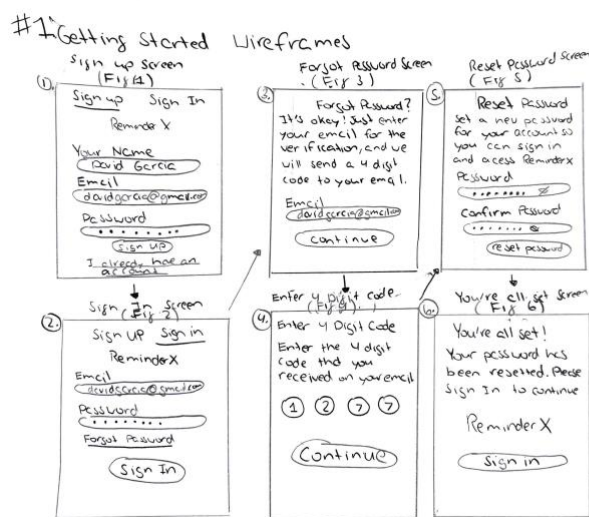 #1: Getting Started Wireframes
Sign up Screen
(Fig 1)
1.
Sign up Sign In
Reminder X
Your Name
David Garcia
Email
davidgarcia@gmail.com
Password
Sign up
I already have an
account
Sign In Screen
(Fig 2)
2.
Sign UP Sign in
ReminderX
Email
davidgarcia@gmail.com
Password
Forgot Password
Sign In
Forgot Password Screen
(Fig 3)
3.
Forgot Password?
It's okay! Just enter
your email for the
verification, and we
will send a 4 digit
code to your email.
Email
davidgarcia@gmail.com
Continue
Enter 4 Digit Code
(Fig 4)
4.
Enter 4 Digit Code
Enter the 4 digit
code that you
received on your email
1 2 7 7
Continue
Reset Password Screen
(Fig 5)
5.
Reset Password
Set a new password
for your account so
you can sign in
and acess ReminderX
Password
Confirm Password
reset password
You're all set Screen
(Fig 6)
6.
You're all set!
Your password has
been resetted. Please
Sign In to continue
Reminder X
Sign in